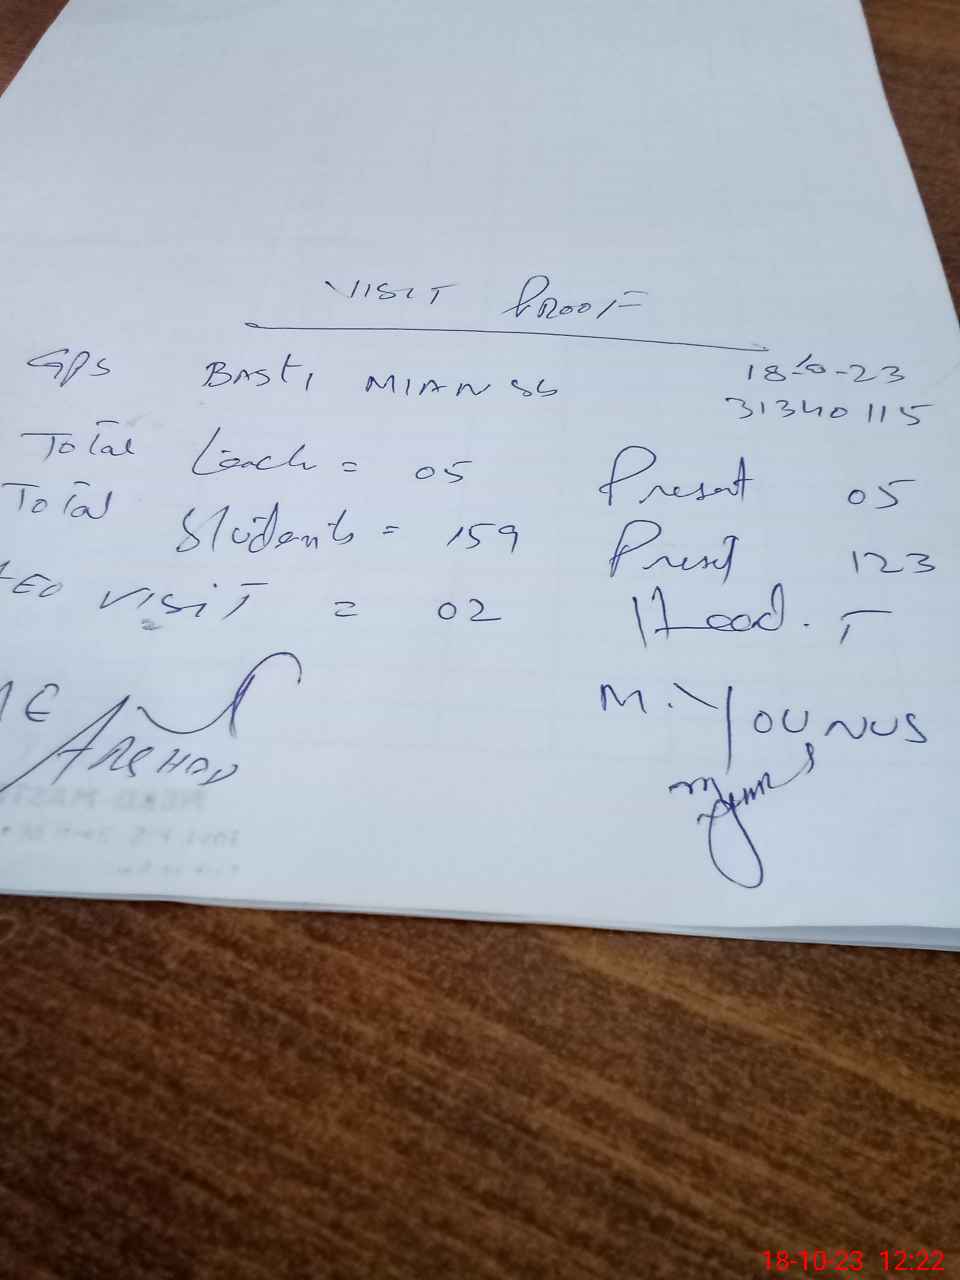 VISIT PROOF
GPS BASTI MIAN SB 18-10-23
31340115
Total Teach = 05 Present 05
Total Students = 159 Preset 123
AEO VISIT = 02 Head. T
M. YOUNUS
ARSHAD
18-10-23 12:22